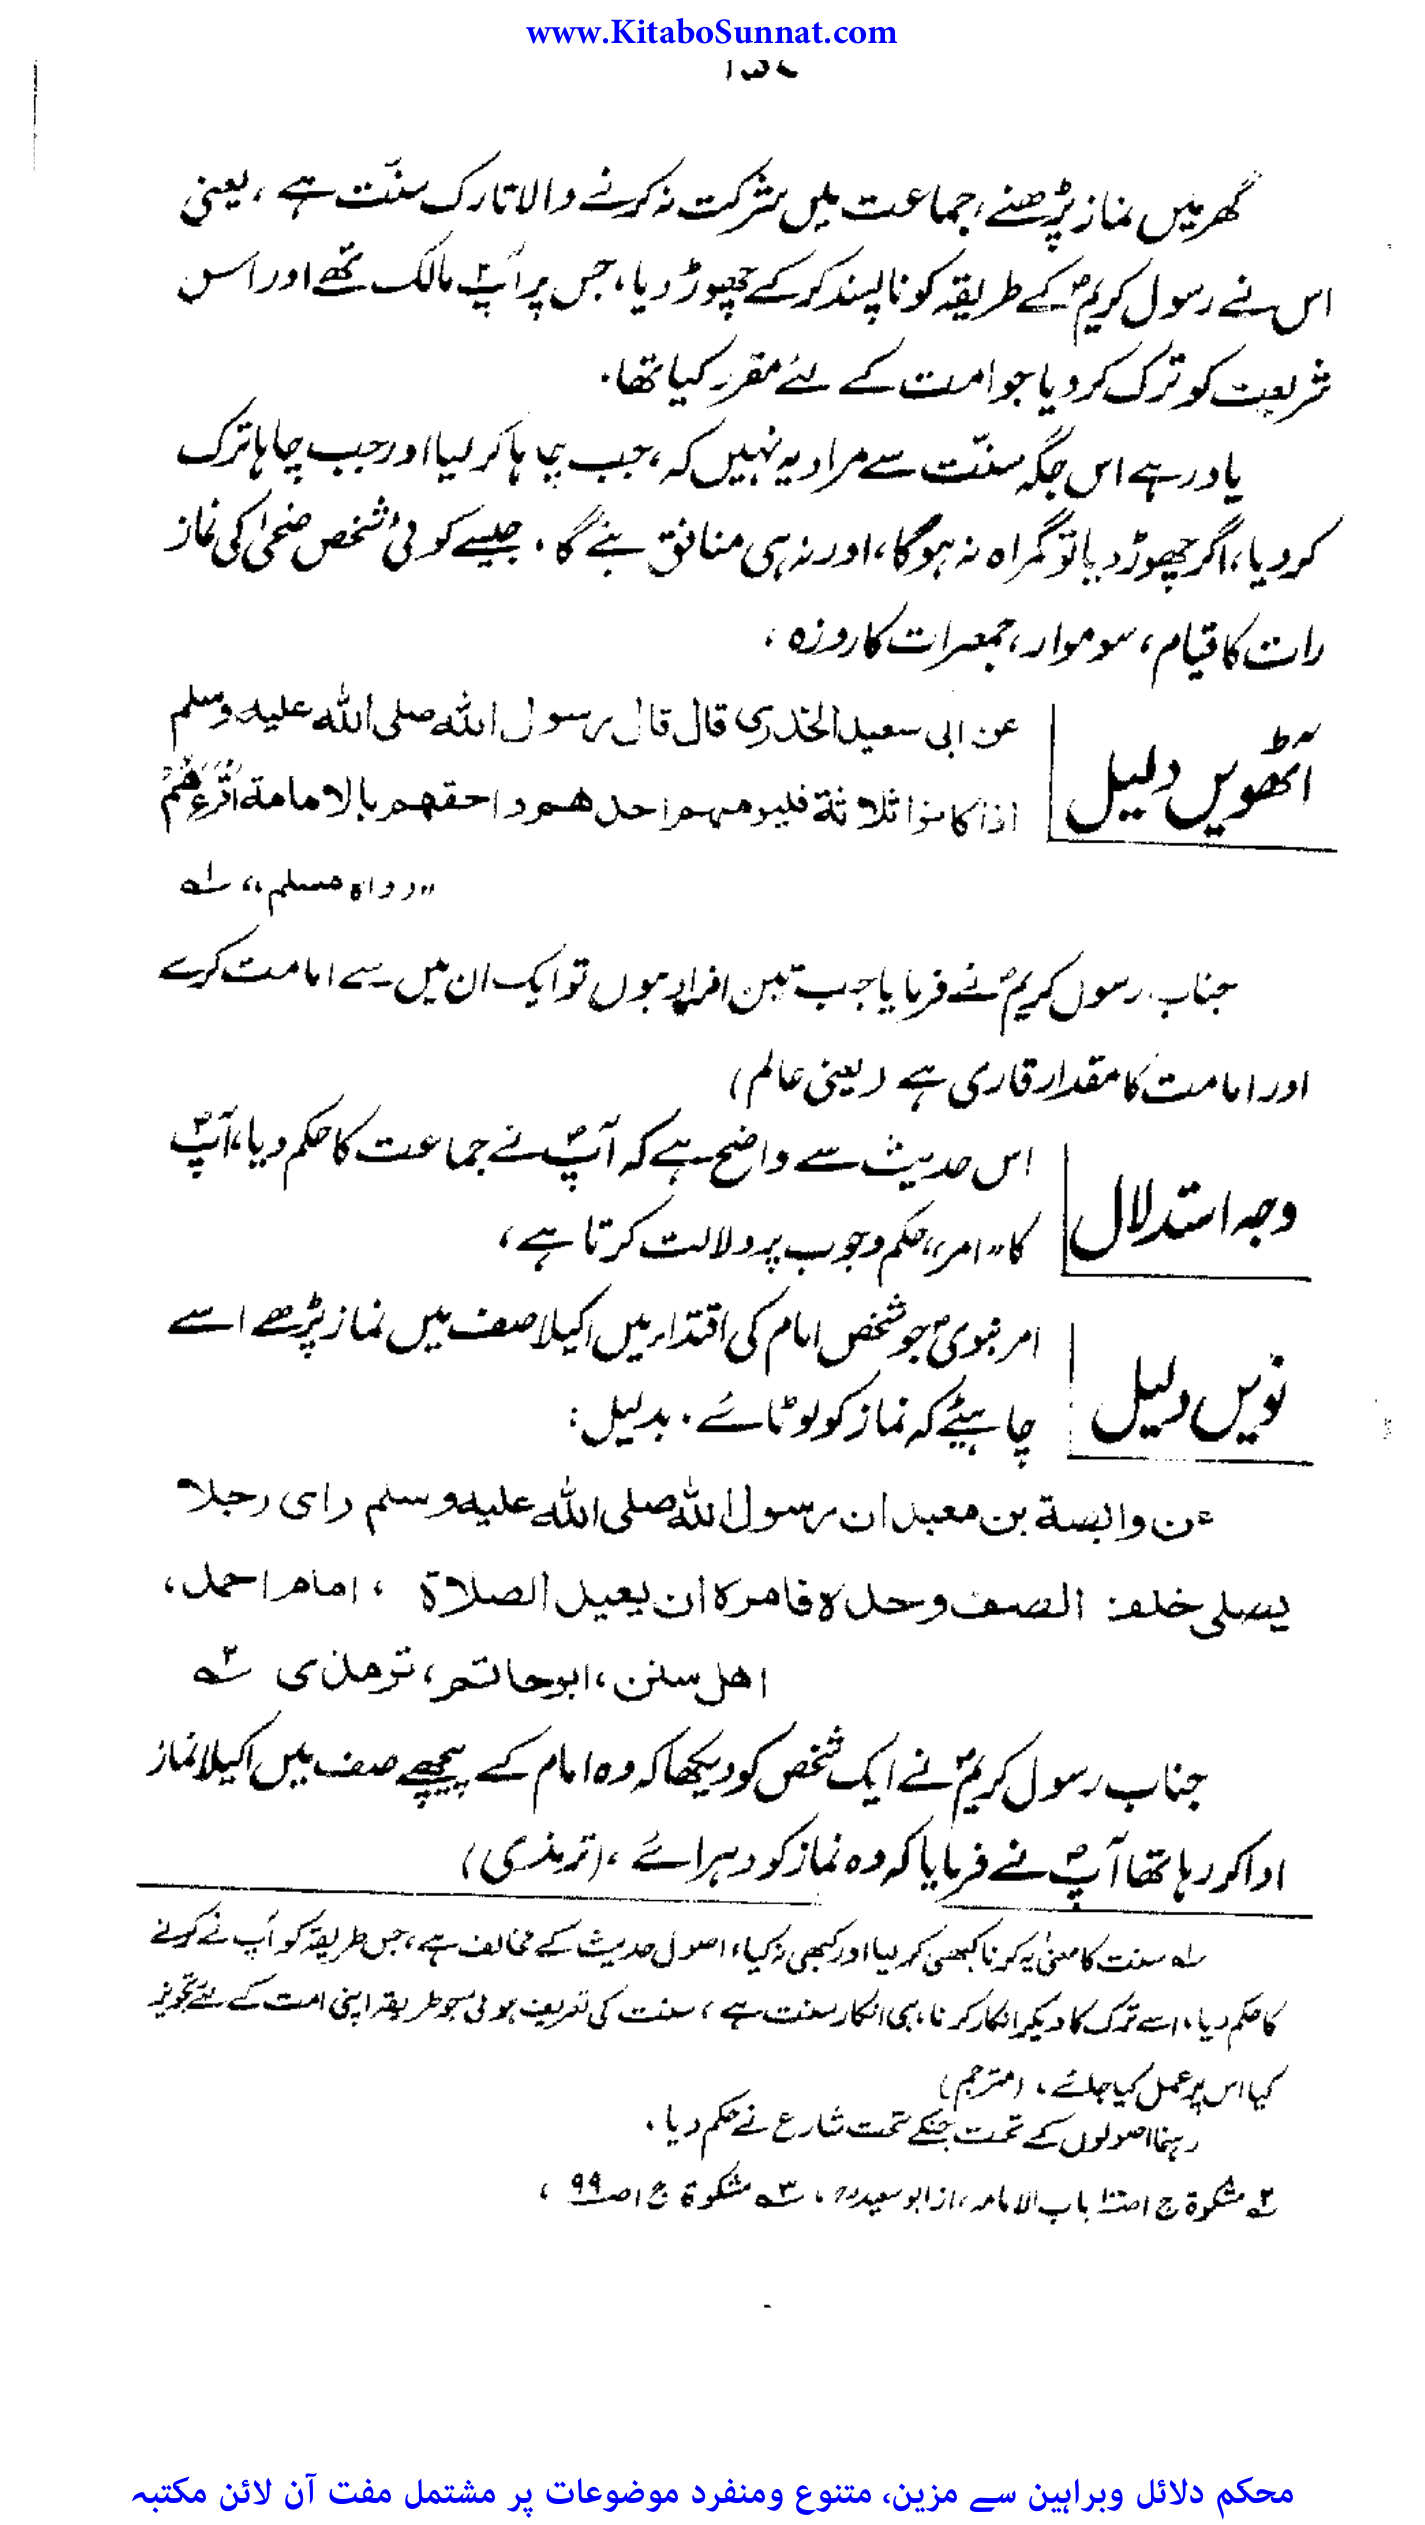 www.KitaboSunnat.com
گھر میں نماز پڑھنے، جماعت میں شرکت نہ کرنے والا تارک سنّت ہے، یعنی
اس نے رسول کریمؐ کے طریقہ کو ناپسند کر کے چھوڑ دیا، جس پر آپؐ مالک تھے اور اس
شریعت کو ترک کر دیا جو امت کے لئے مقرر کیا تھا۔
یاد رہے اس جگہ سنّت سے مراد یہ نہیں کہ، جب چاہا کر لیا اور جب چاہا ترک
کر دیا، اگر چھوڑ دیا تو گمراہ نہ ہوگا، اور نہ ہی منافق بنے گا۔ جیسے کوئی شخص ضحیٰ کی نماز
رات کا قیام، سوموار، جمعرات کا روزہ،
آٹھویں دلیل
عن ابی سعید الخدری قال قال رسول اللہ صلی اللہ علیہ وسلم
اذا کانوا ثلاثة فلیومہم احدھم و احقھم بالامامة اقرءھم
"رواہ مسلم" ۱؎
جناب رسول کریمؐ نے فرمایا جب تین افراد ہوں تو ایک ان میں سے امامت کرے
اور امامت کا مقدار قاری ہے (یعنی عالم)
وجہ استدلال
اس حدیث سے واضح ہے کہ آپؐ نے جماعت کا حکم دیا، آپؐ
کا "امر" حکم وجوب پر دلالت کرتا ہے،
نویں دلیل
امر نبویؐ جو شخص امام کی اقتداء میں اکیلا صف میں نماز پڑھے اسے
چاہیئے کہ نماز کو لوٹائے۔ بدلیل:
عن وابصة بن معبد ان رسول اللہ صلی اللہ علیہ وسلم رای رجلا
یصلی خلف الصف وحدہ فامرہ ان یعید الصلاة، امام احمد،
اھل سنن، ابوحاتم، ترمذی ۲؎
جناب رسول کریمؐ نے ایک شخص کو دیکھا کہ وہ امام کے پیچھے صف میں اکیلا نماز
ادا کر رہا تھا آپؐ نے فرمایا کہ وہ نماز کو دہرائے، (ترمذی)
۱؎ سنت کا معنیٰ یہ کرنا کبھی کر لیا اور کبھی نہ کیا، اصول حدیث کے مخالف ہے، جس طریقہ کو آپ نے کرنے
کا حکم دیا، اسے ترک کا دیکر انکار کرنا، ہی انکار سنت ہے، سنت کی تعریف ہوئی جو طریقہ اپنی امت کے لئے تجویز
کیا اس پر عمل کیا جائے، (مترجم)
رہنما اصولوں کے تحت جنکے تحت شارع نے حکم دیا۔
۲؎ مشکوة ج۱ ص۱۰۰ باب الامامہ، از ابوسعیدؓ، ۳؎ مشکوة ج۱ ص۹۹،
محکم دلائل وبراہین سے مزین، متنوع ومنفرد موضوعات پر مشتمل مفت آن لائن مکتبہ